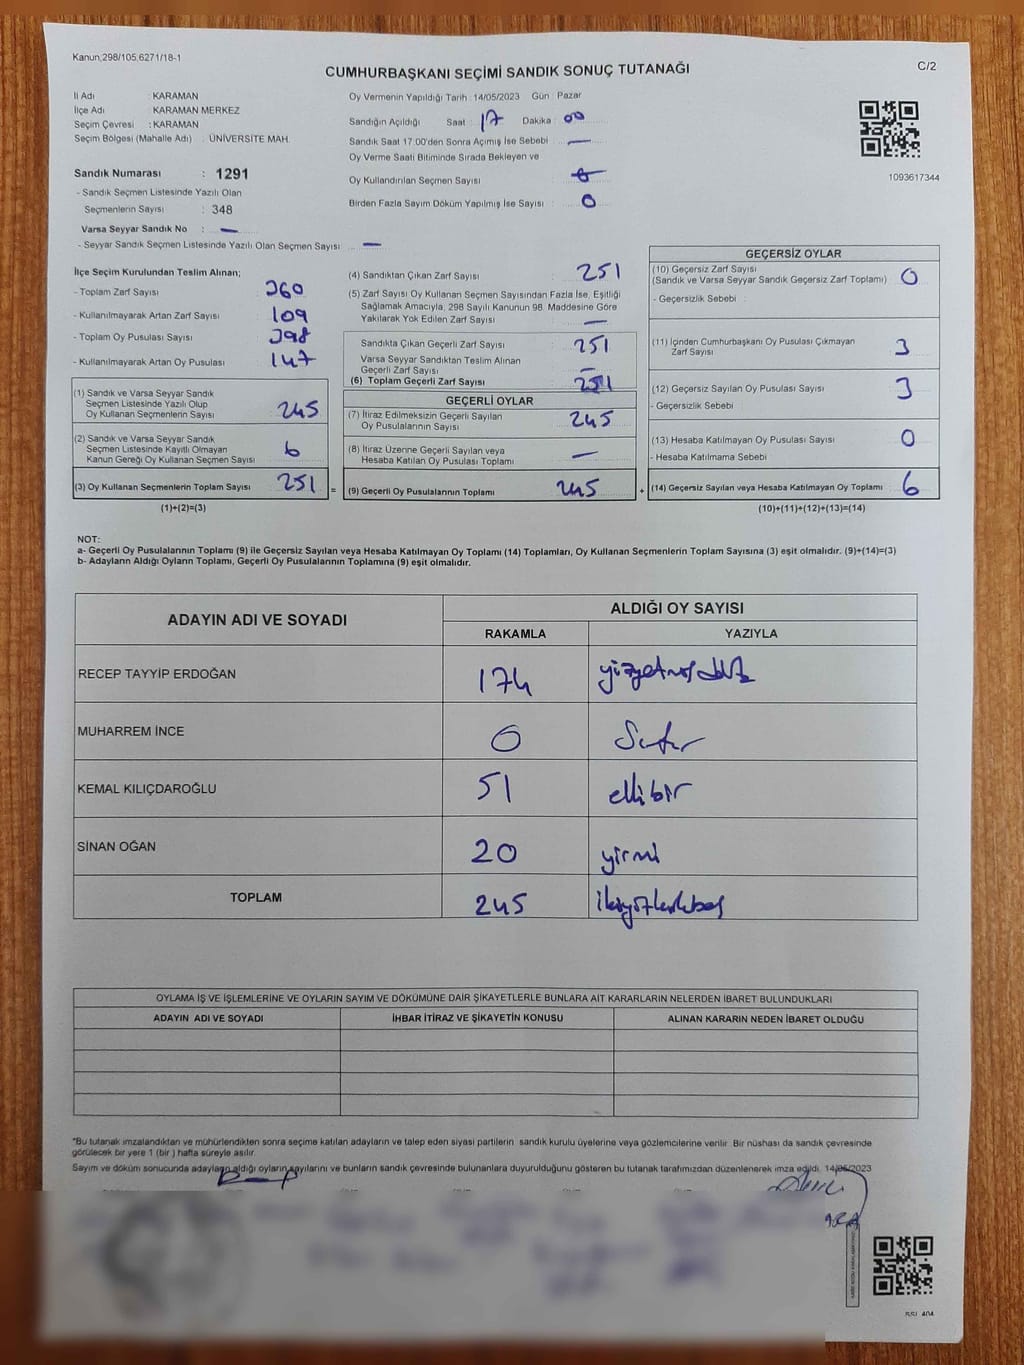 Kanun;298/105,6271/18-1
CUMHURBAŞKANI SEÇİMİ SANDIK SONUÇ TUTANAĞI
C/2
İl Adı : KARAMAN
İlçe Adı : KARAMAN MERKEZ
Seçim Çevresi : KARAMAN
Seçim Bölgesi (Mahalle Adı) : ÜNİVERSİTE MAH.
Sandık Numarası : 1291
- Sandık Seçmen Listesinde Yazılı Olan
Seçmenlerin Sayısı : 348
Varsa Seyyar Sandık No : —
- Seyyar Sandık Seçmen Listesinde Yazılı Olan Seçmen Sayısı : —
Oy Vermenin Yapıldığı Tarih : 14/05/2023 Gün : Pazar
Sandığın Açıldığı Saat : 17 Dakika : 00
Sandık Saat 17:00'den Sonra Açımış İse Sebebi : —
Oy Verme Saati Bitiminde Sırada Bekleyen ve
Oy Kullandırılan Seçmen Sayısı :
Birden Fazla Sayım Döküm Yapılmış İse Sayısı : 0
1093617344
İlçe Seçim Kurulundan Teslim Alınan;
- Toplam Zarf Sayısı : 360
- Kullanılmayarak Artan Zarf Sayısı : 109
- Toplam Oy Pusulası Sayısı : 398
- Kullanılmayarak Artan Oy Pusulası : 147
(1) Sandık ve Varsa Seyyar Sandık
Seçmen Listesinde Yazılı Olup
Oy Kullanan Seçmenlerin Sayısı : 245
(2) Sandık ve Varsa Seyyar Sandık
Seçmen Listesinde Kayıtlı Olmayan
Kanun Gereği Oy Kullanan Seçmen Sayısı : 6
(3) Oy Kullanan Seçmenlerin Toplam Sayısı : 251 =
(1)+(2)=(3)
(4) Sandıktan Çıkan Zarf Sayısı : 251
(5) Zarf Sayısı Oy Kullanan Seçmen Sayısından Fazla İse, Eşitliği
Sağlamak Amacıyla, 298 Sayılı Kanunun 98. Maddesine Göre
Yakılarak Yok Edilen Zarf Sayısı : —
Sandıkta Çıkan Geçerli Zarf Sayısı : 251
Varsa Seyyar Sandıktan Teslim Alınan
Geçerli Zarf Sayısı : —
(6) Toplam Geçerli Zarf Sayısı : 251
GEÇERLİ OYLAR
(7) İtiraz Edilmeksizin Geçerli Sayılan
Oy Pusulalarının Sayısı : 245
(8) İtiraz Üzerine Geçerli Sayılan veya
Hesaba Katılan Oy Pusulası Toplamı : —
(9) Geçerli Oy Pusulalarının Toplamı : 245 +
GEÇERSİZ OYLAR
(10) Geçersiz Zarf Sayısı
(Sandık ve Varsa Seyyar Sandık Geçersiz Zarf Toplamı) : 0
- Geçersizlik Sebebi :
(11) İçinden Cumhurbaşkanı Oy Pusulası Çıkmayan
Zarf Sayısı : 3
(12) Geçersiz Sayılan Oy Pusulası Sayısı : 3
- Geçersizlik Sebebi :
(13) Hesaba Katılmayan Oy Pusulası Sayısı : 0
- Hesaba Katılmama Sebebi
(14) Geçersiz Sayılan veya Hesaba Katılmayan Oy Toplamı : 6
(10)+(11)+(12)+(13)=(14)
NOT:
a- Geçerli Oy Pusulalarının Toplamı (9) ile Geçersiz Sayılan veya Hesaba Katılmayan Oy Toplamı (14) Toplamları, Oy Kullanan Seçmenlerin Toplam Sayısına (3) eşit olmalıdır. (9)+(14)=(3)
b- Adayların Aldığı Oyların Toplamı, Geçerli Oy Pusulalarının Toplamına (9) eşit olmalıdır.
ADAYIN ADI VE SOYADI
ALDIĞI OY SAYISI
RAKAMLA YAZIYLA
RECEP TAYYİP ERDOĞAN 174 yüzyetmişdört
MUHARREM İNCE 0 Sıfır
KEMAL KILIÇDAROĞLU 51 ellibir
SİNAN OĞAN 20 yirmi
TOPLAM 245 ikiyüzkırkbeş
OYLAMA İŞ VE İŞLEMLERİNE VE OYLARIN SAYIM VE DÖKÜMÜNE DAİR ŞİKAYETLERLE BUNLARA AİT KARARLARIN NELERDEN İBARET BULUNDUKLARI
ADAYIN ADI VE SOYADI İHBAR İTİRAZ VE ŞİKAYETİN KONUSU ALINAN KARARIN NEDEN İBARET OLDUĞU
*Bu tutanak imzalandıktan ve mühürlendikten sonra seçime katılan adayların ve talep eden siyasi partilerin sandık kurulu üyelerine veya gözlemcilerine verilir. Bir nüshası da sandık çevresinde
görülecek bir yere 1 (bir ) hafta süreyle asılır.
Sayım ve döküm sonucunda adayların aldığı oyların sayılarını ve bunların sandık çevresinde bulunanlara duyurulduğunu gösteren bu tutanak tarafımızdan düzenlenerek imza edildi. 14/05/2023